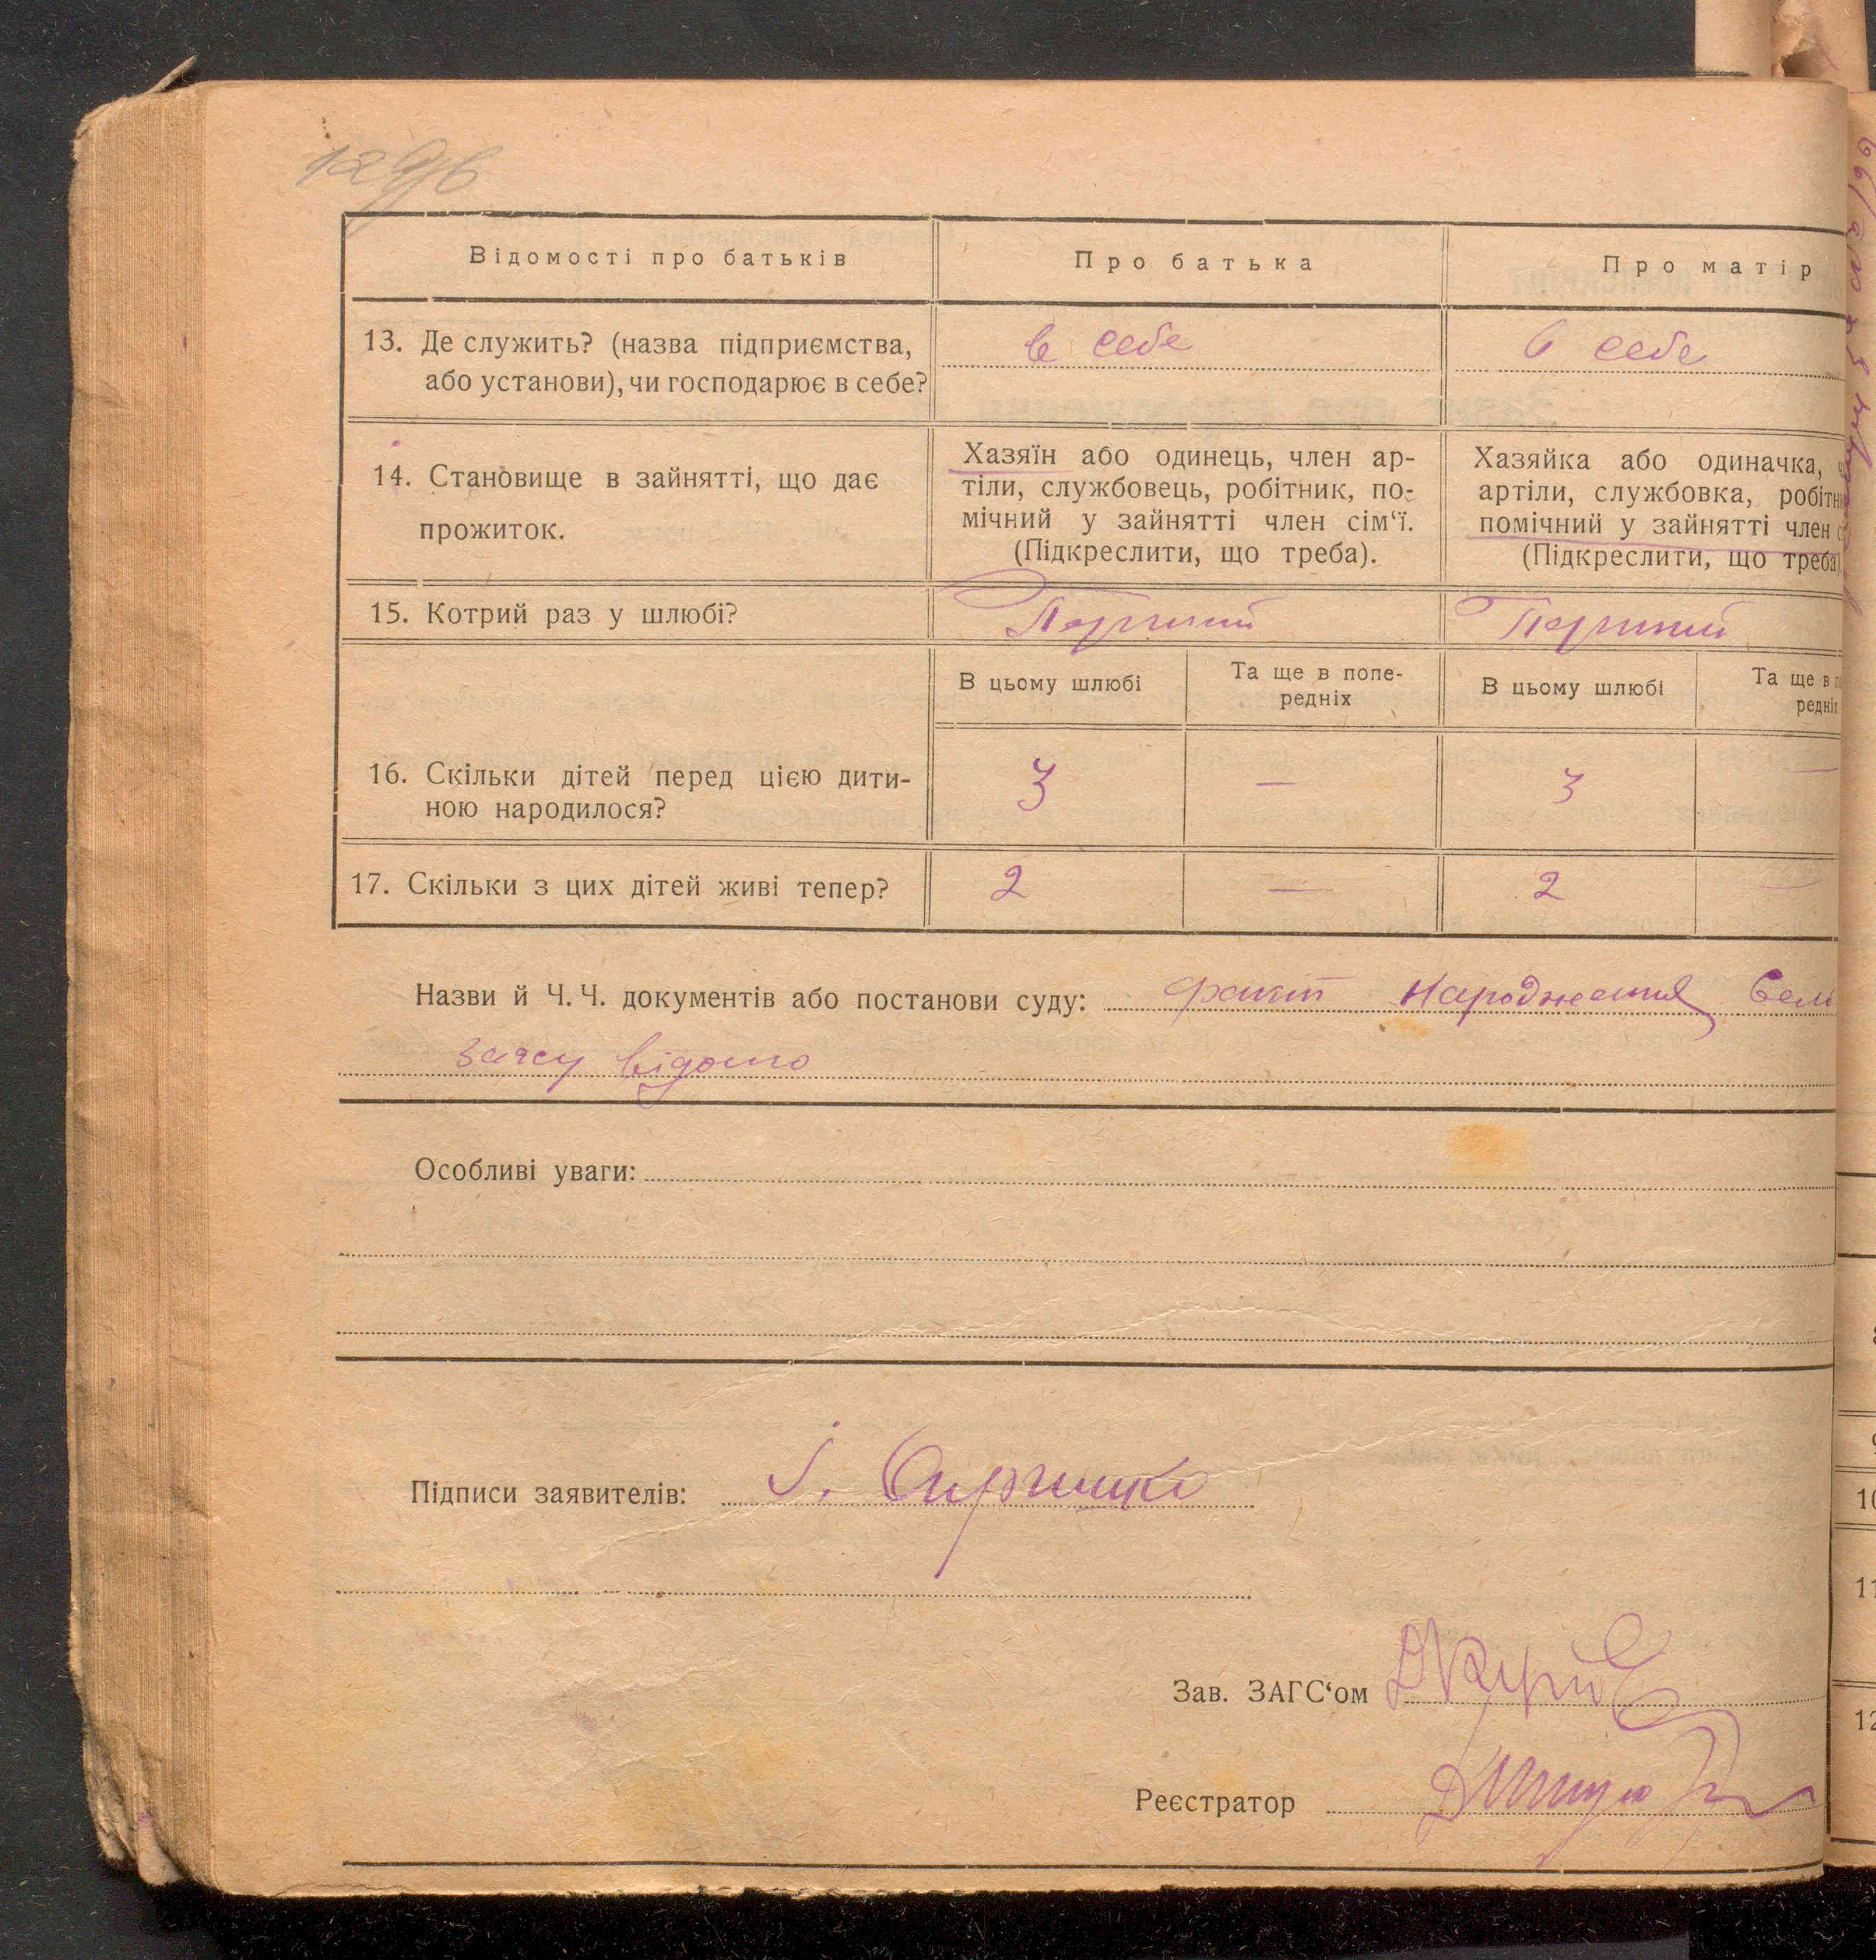 Відомості про батьків
Про батька
Про матір
13. Де служить? (назва підприємства,
або установи), чи господарює в себе?
в себе
в себе
14. Становище в зайнятті, що дає
прожиток.
Хазяїн або одинець, член ар-
тіли, службовець, робітник, по-
мічний у зайнятті член сім‘ї.
(Підкреслити, що треба).
Хазяйка або одиначка,
артіли, службовка, робітн
помічний у зайнятті член
(Підкреслити, що треба)
15. Котрий раз у шлюбі?
Перший
Перший
В цьому шлюбі
Та ще в попе-
редніх
В цьому шлюбі
Та ще в
редніх
16. Скільки дітей перед цією дити-
ною народилося?
3
—
3
—
17. Скільки з цих дітей живі тепер?
2
—
2
—
Назви й Ч. Ч. документів або постанови суду: факт народження
загсу відомо
Особливі уваги:
Підписи заявителів: І.
Зав. ЗАГС‘ом
Реєстратор
10
11
12